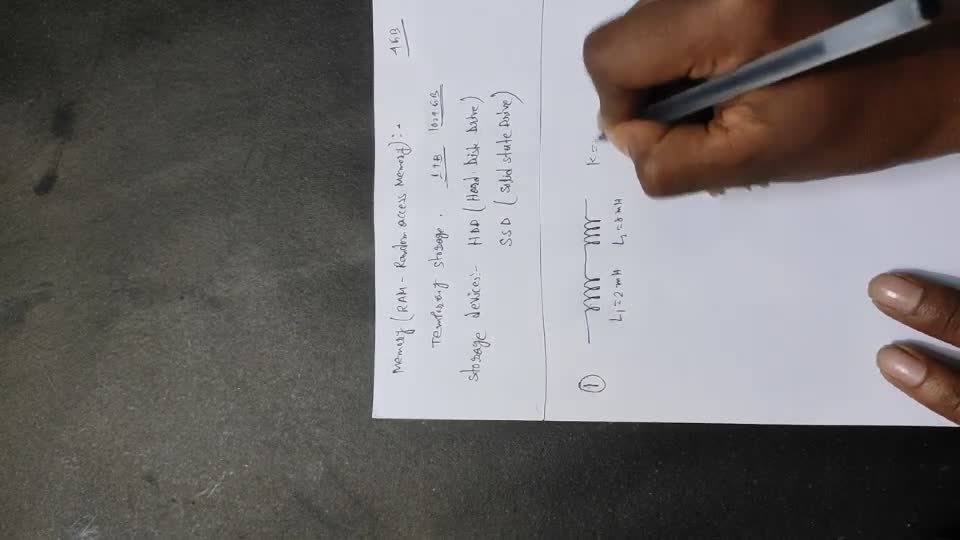 4GB
Memory (RAM - Random access Memory):-
Temporary storage. 1TB 1024GB
Storage devices:- HDD (Hard Disk Drive)
SSD (Solid State Drive)
①
L₁=2mH L₂=8mH K=